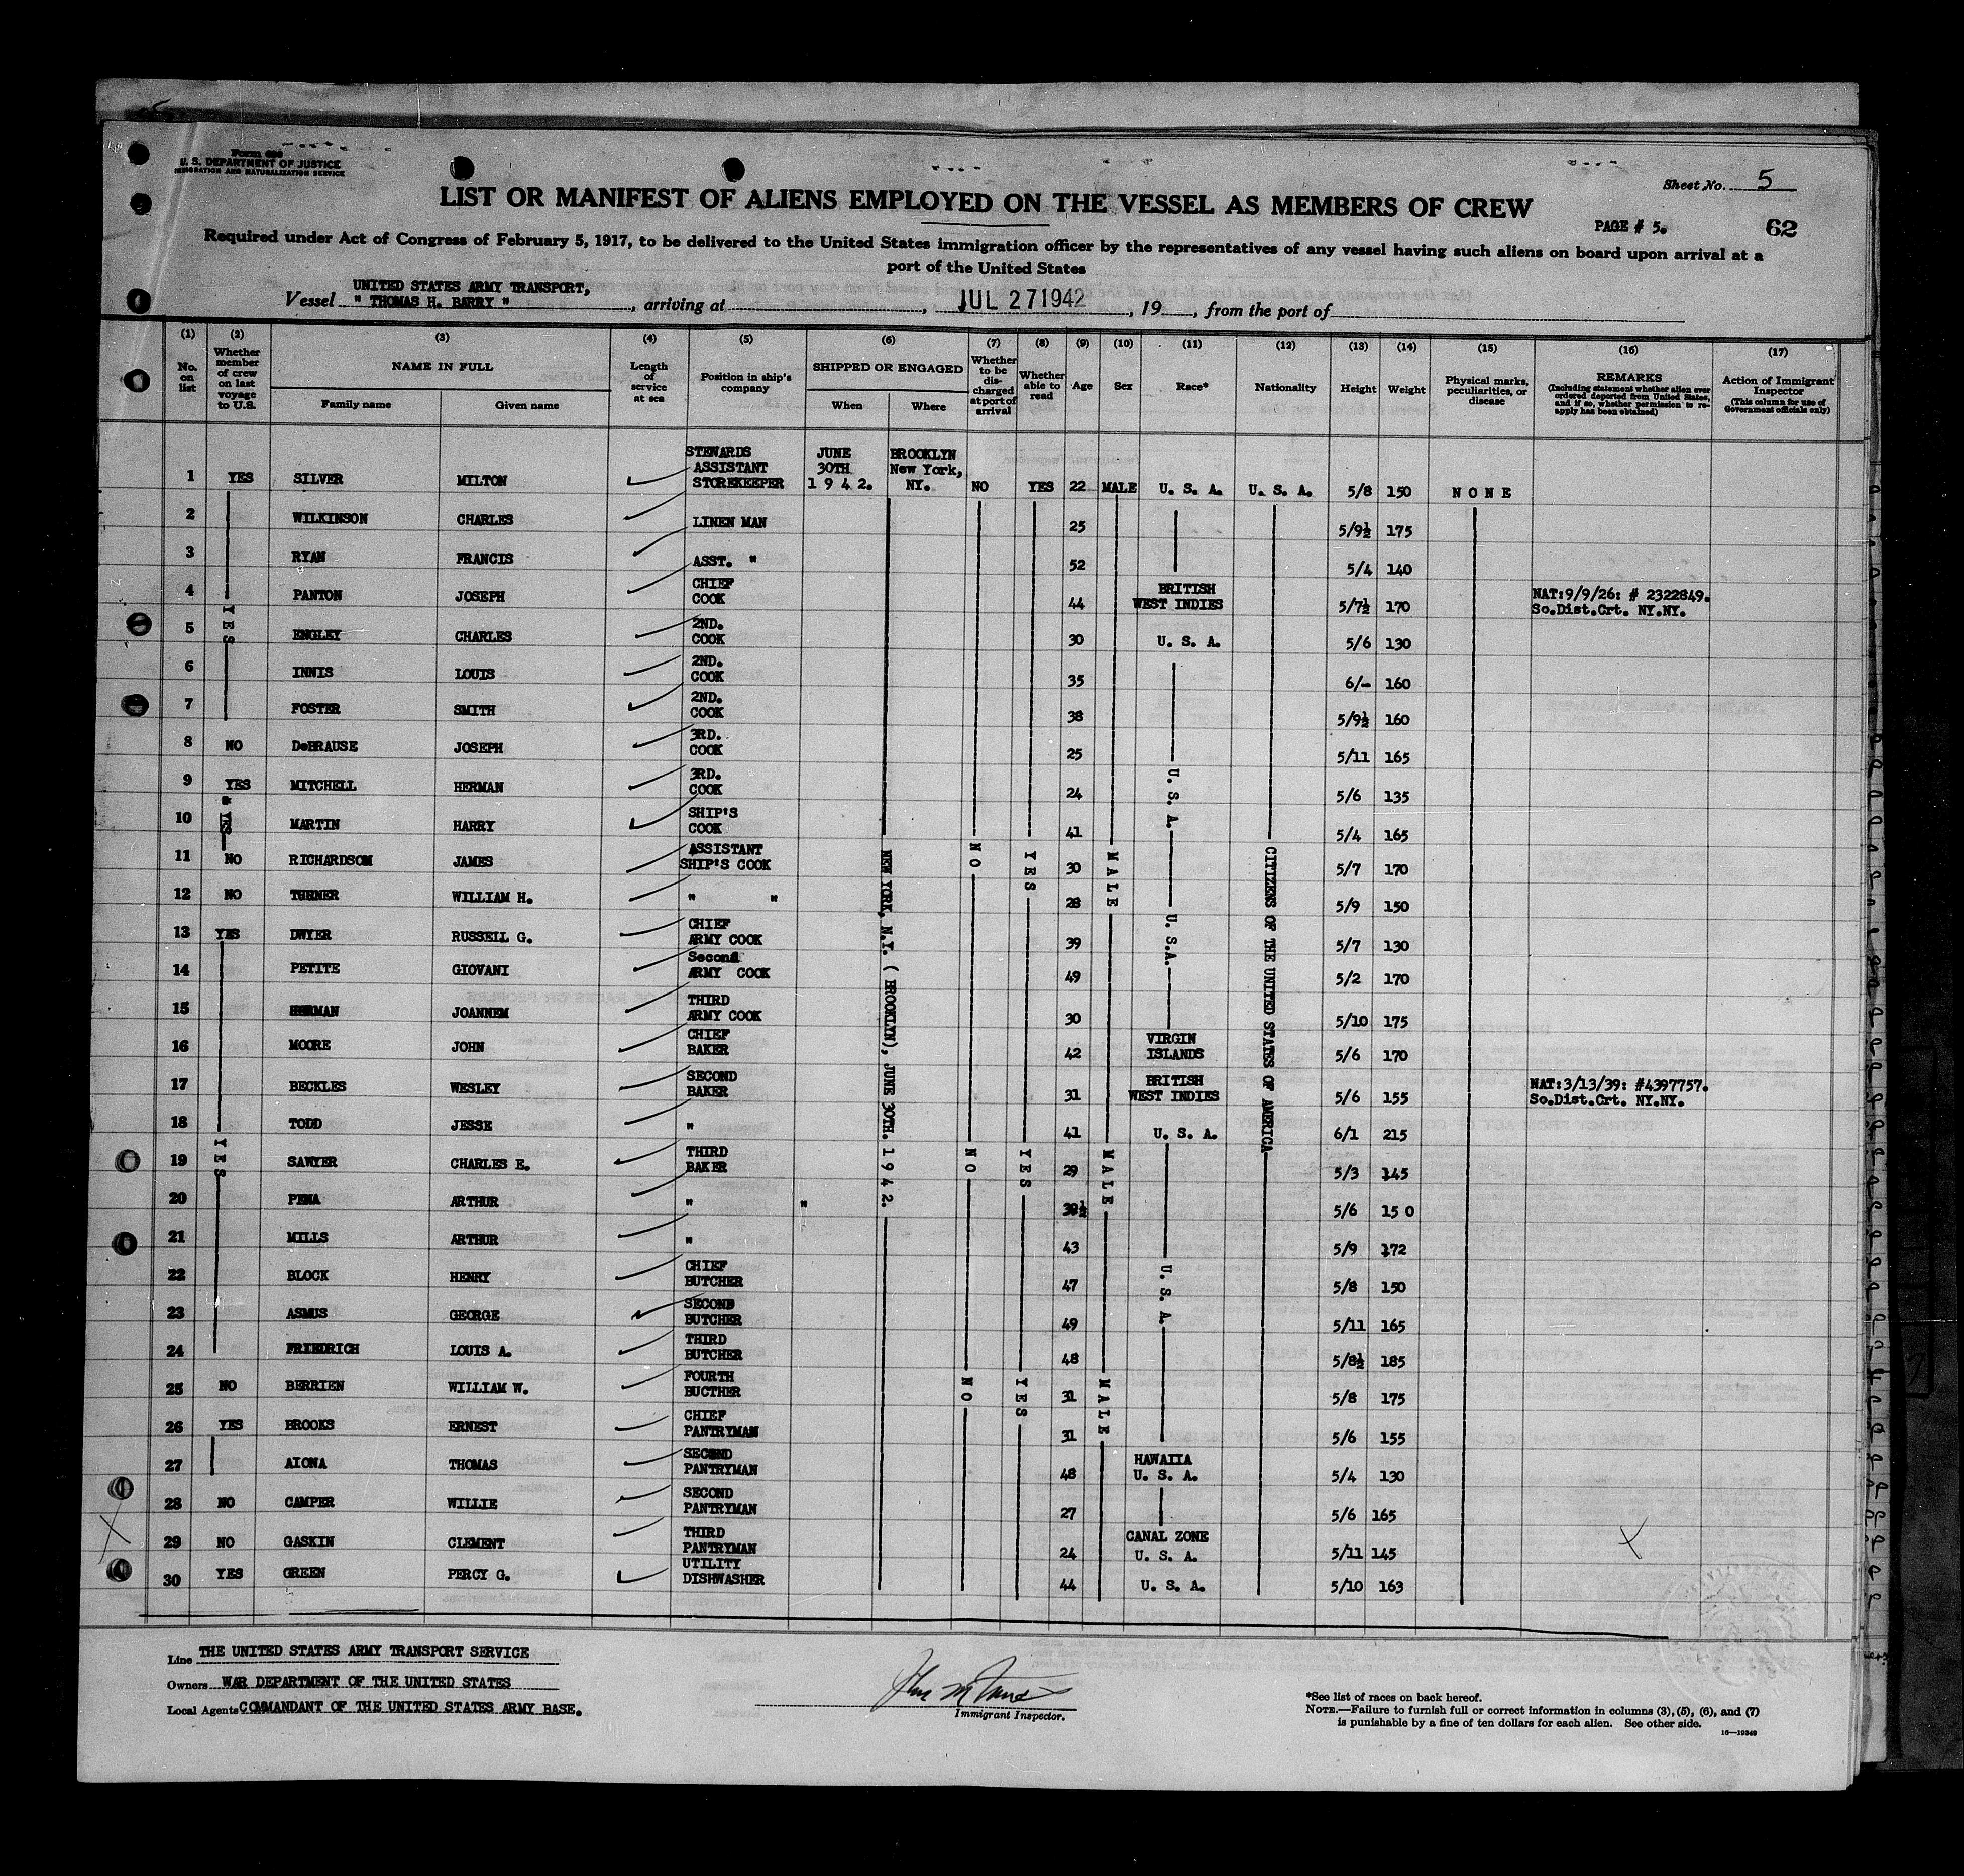 Form 680
U. S. DEPARTMENT OF JUSTICE
IMMIGRATION AND NATURALIZATION SERVICE
Sheet No. 5
LIST OR MANIFEST OF ALIENS EMPLOYED ON THE VESSEL AS MEMBERS OF CREW
PAGE # 5. 62
Required under Act of Congress of February 5, 1917, to be delivered to the United States immigration officer by the representatives of any vessel having such aliens on board upon arrival at a
port of the United States
UNITED STATES ARMY TRANSPORT,
Vessel " THOMAS H. BARRY ", arriving at , JUL 27 1942, 19 , from the port of
(1) (2) (3) (4) (5) (6) (7) (8) (9) (10) (11) (12) (13) (14) (15) (16) (17)
No. on list
Whether member of crew on last voyage to U.S.
NAME IN FULL
Family name Given name
Length of service at sea
Position in ship's company
SHIPPED OR ENGAGED
When Where
Whether to be discharged at port of arrival
Whether able to read
Age
Sex
Race*
Nationality
Height
Weight
Physical marks, peculiarities, or disease
REMARKS
(Including statement whether alien ever ordered deported from United States, and if so, whether permission to reapply has been obtained)
Action of Immigrant Inspector
(This column for use of Government officials only)
1 YES SILVER MILTON STEWARDS ASSISTANT STOREKEEPER JUNE 30TH 1942. BROOKLYN New York, NY. NO YES 22 MALE U. S. A. U. S. A. 5/8 150 NONE
2 WILKINSON CHARLES LINEN MAN 25 5/9½ 175
3 RYAN FRANCIS ASST. " 52 5/4 140
4 PANTON JOSEPH CHIEF COOK 44 BRITISH WEST INDIES 5/7½ 170 NAT:9/9/26: # 2322849. So.Dist.Crt. NY.NY.
5 ENGLEY CHARLES 2ND. COOK 30 U. S. A. 5/6 130
6 INNIS LOUIS 2ND. COOK 35 6/- 160
7 FOSTER SMITH 2ND. COOK 38 5/9½ 160
8 NO DeBRAUSE JOSEPH 3RD. COOK 25 5/11 165
9 YES MITCHELL HERMAN 3RD. COOK 24 5/6 135
10 MARTIN HARRY SHIP'S COOK 41 5/4 165
11 NO RICHARDSON JAMES ASSISTANT SHIP'S COOK 30 5/7 170
12 NO TURNER WILLIAM H. " " 28 5/9 150
13 YES DWYER RUSSELL G. CHIEF ARMY COOK 39 5/7 130
14 PETITE GIOVANI Second ARMY COOK 49 5/2 170
15 HERMAN JOANNEM THIRD ARMY COOK 30 5/10 175
16 MOORE JOHN CHIEF BAKER 42 VIRGIN ISLANDS 5/6 170
17 BECKLES WESLEY SECOND BAKER 31 BRITISH WEST INDIES 5/6 155 NAT:3/13/39: #4397757. So.Dist.Crt. NY.NY.
18 TODD JESSE " 41 U. S. A. 6/1 215
19 SAWYER CHARLES E. THIRD BAKER 29 5/3 145
20 PENA ARTHUR " " 5/6 150
21 MILLS ARTHUR " 43 5/9 172
22 BLOCK HENRY CHIEF BUTCHER 47 5/8 150
23 ASMUS GEORGE SECOND BUTCHER 49 5/11 165
24 FRIEDRICH LOUIS A. THIRD BUTCHER 48 5/8½ 185
25 NO BERRIEN WILLIAM W. FOURTH BUCTHER 31 5/8 175
26 YES BROOKS ERNEST CHIEF PANTRYMAN 31 5/6 155
27 AIONA THOMAS SECOND PANTRYMAN 48 HAWAIIA U. S. A. 5/4 130
28 NO CAMPER WILLIE SECOND PANTRYMAN 27 5/6 165
29 NO GASKIN CLEMENT THIRD PANTRYMAN 24 CANAL ZONE U. S. A. 5/11 145
30 YES GREEN PERCY G. UTILITY DISHWASHER 44 U. S. A. 5/10 163
YES
" YES
YES
NEW YORK, N.Y. ( BROOKLYN), JUNE 30TH. 1942.
NO
NO
NO
YES
YES
YES
MALE
MALE
MALE
U. S. A.
U. S.A.
U. S. A.
CITIZENS OF THE UNITED STATES OF AMERICA
Line THE UNITED STATES ARMY TRANSPORT SERVICE
Owners WAR DEPARTMENT OF THE UNITED STATES
Local Agents COMMANDANT OF THE UNITED STATES ARMY BASE.
Immigrant Inspector.
*See list of races on back hereof.
NOTE.—Failure to furnish full or correct information in columns (3), (5), (6), and (7)
is punishable by a fine of ten dollars for each alien. See other side.
16—19349